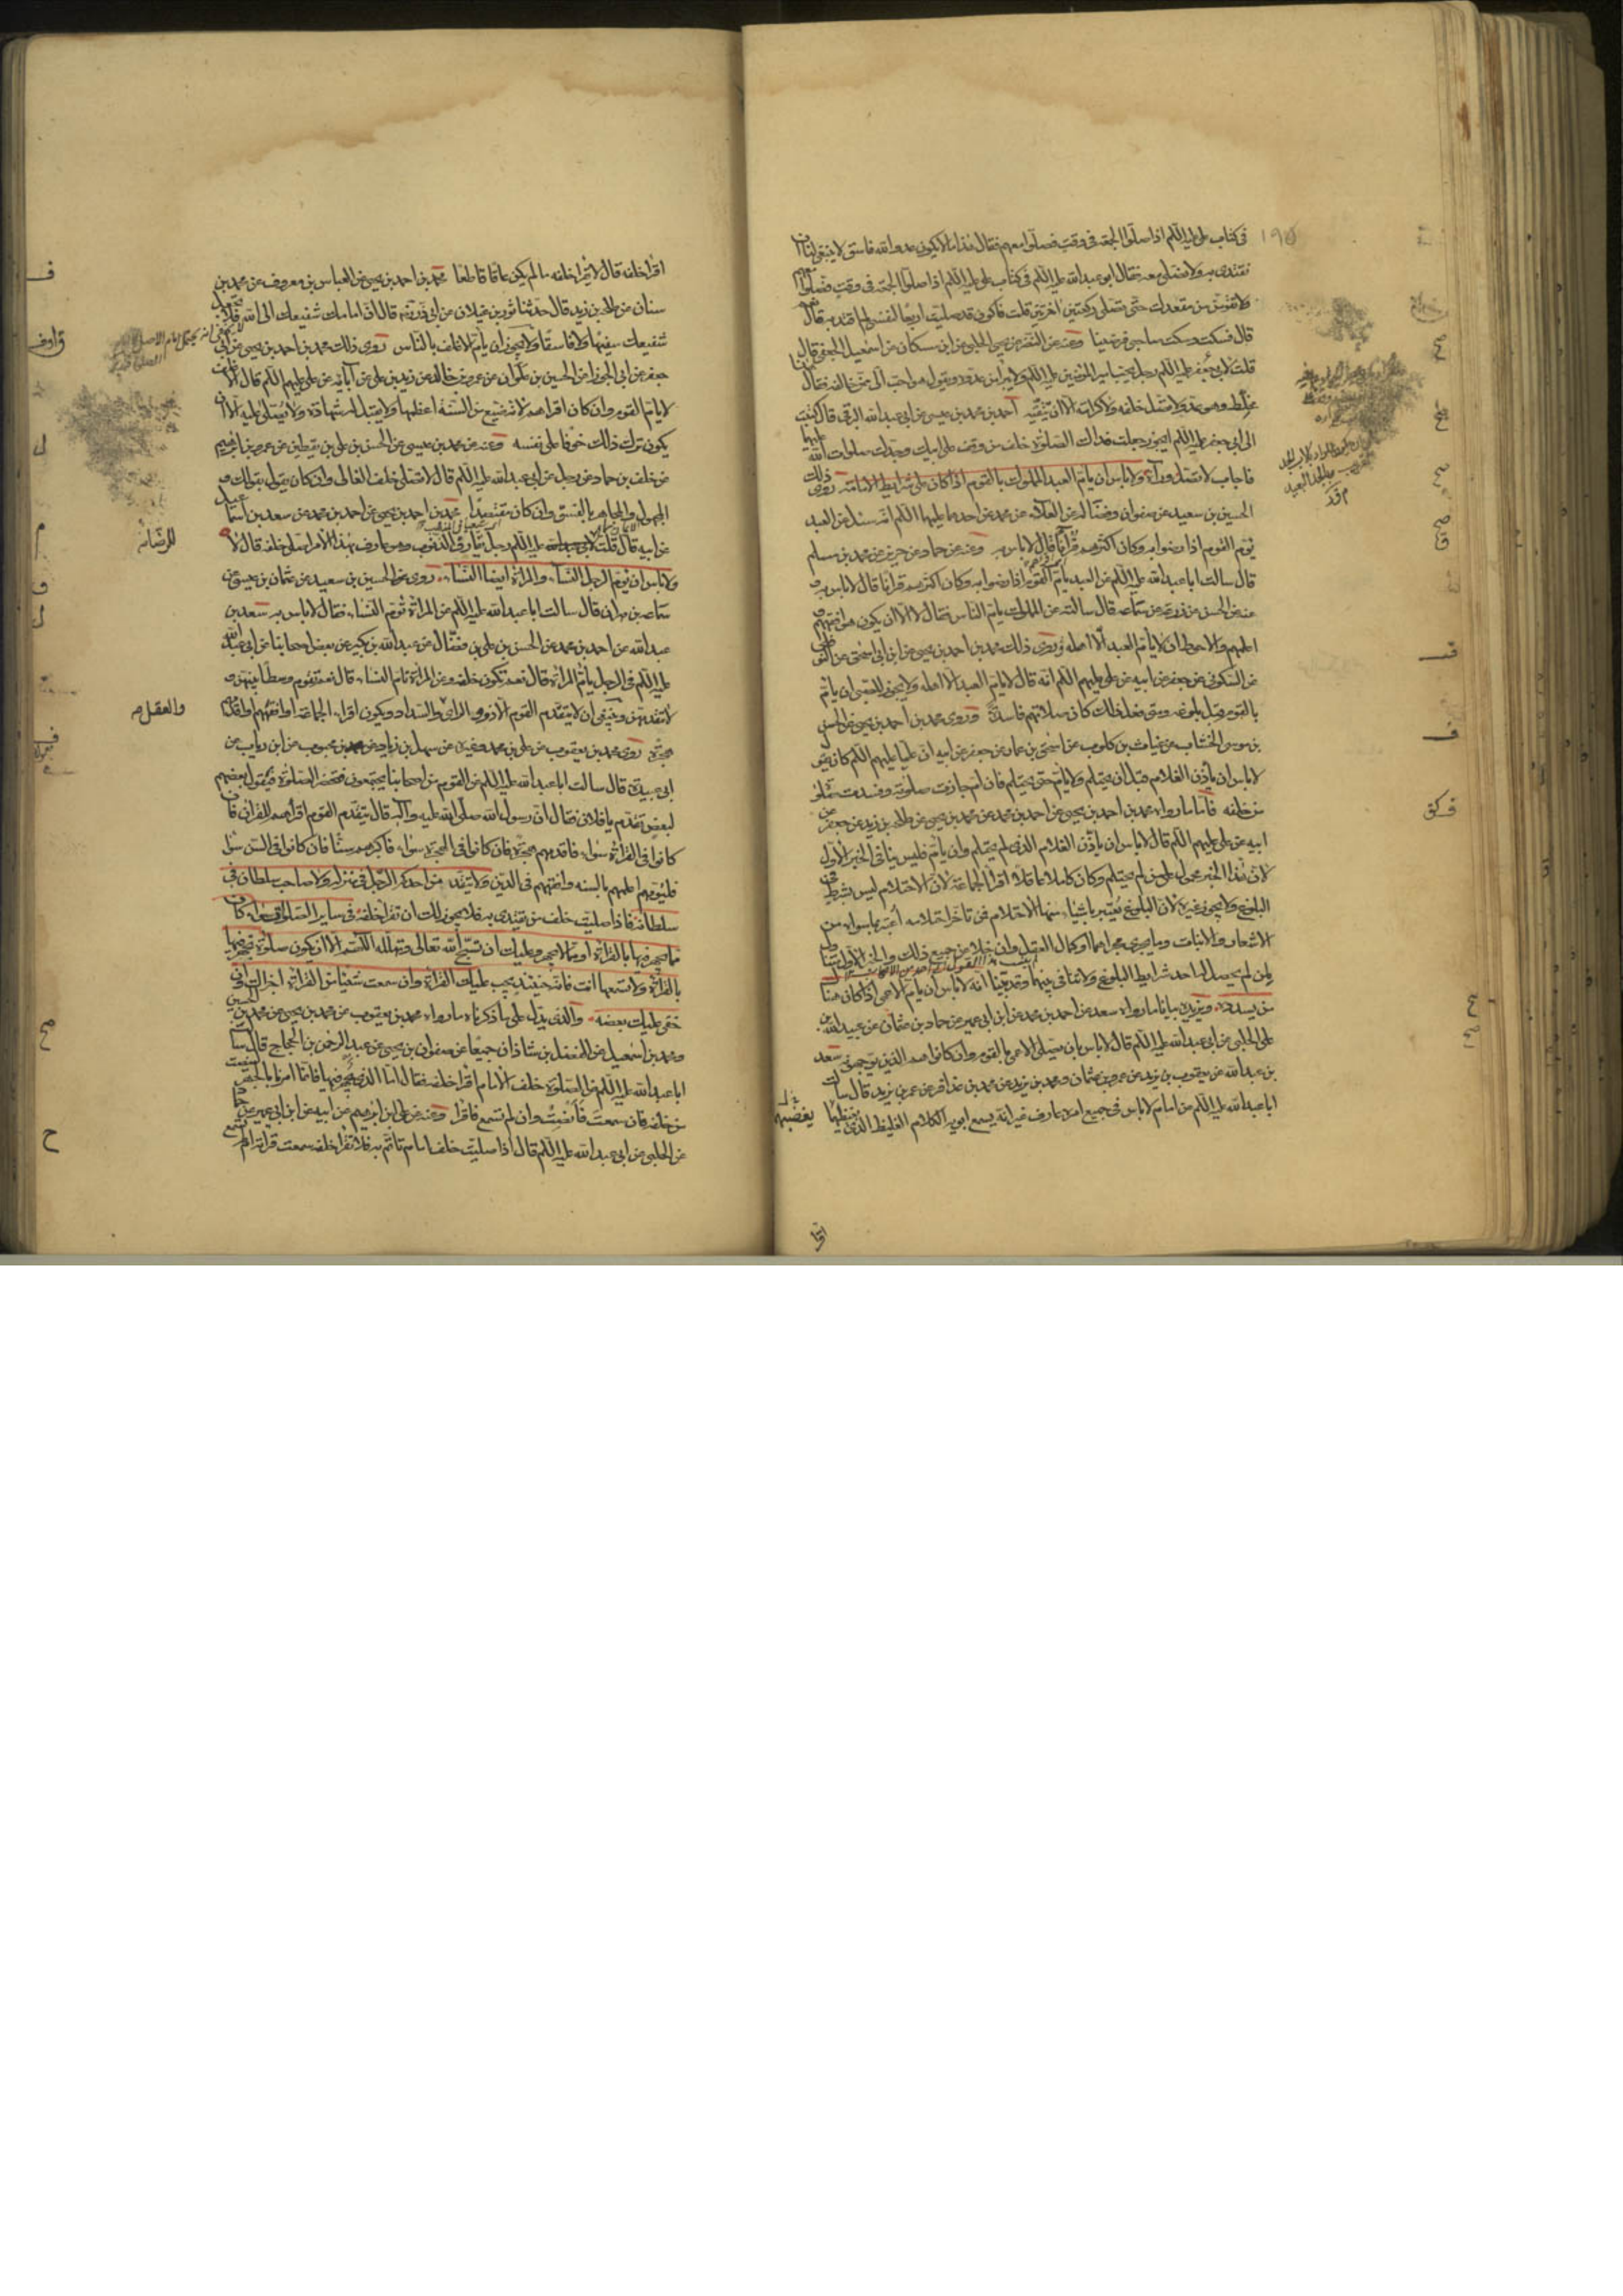 في كتاب علي عليه اللم اذا صلوا الجمعة في وقت فصلوا معهم فقال هذا ما لا يكون عدو الله فاسق لا ينبغي لنا ان
نقتدى به ولا نصلي معه فقال ابو عبد الله عليه اللم في كتاب علي عليه اللم اذا صلوا الجمعة في وقت فصلوا معهم
ولا تقومن من مقعدك حتى تصلي ركعتين اخريين قلت فاكون قد صليت اربعا لنفسي لم اقتد به فقال نعم
قال فسكت وسكت صاحبي فرضينا وعنه عن النضر عن يحيى الحلبي عن ابن مسكان عن اسمعيل الجعفي قال
قلت لابي جعفر عليه اللم رجل يحب امير المؤمنين عليه اللم ولا يبرا من عدوه ويقول هو احب الي ممن خالفه فقال هذا
مخلط وهو عدو ولا تصل خلفه ولا كرامة الا ان تتقيه احمد بن محمد بن عيسى عن ابي عبد الله البرقي قال كتبت
الى ابي جعفر عليه اللم ايجوز جعلت فداك الصلوة خلف من وقف على ابيك وجدك صلوات الله عليهما
فاجاب لا تصل وراءه ولا باس ان يام العبد المملوك بالقوم اذا كان على شرايط الامامة روى ذلك
الحسين بن سعيد عن صفوان وفضالة عن العلاء عن محمد عن احدهما عليهما اللم انه سئل عن العبد
يؤم القوم اذا رضوا به وكان اكثرهم قرانا قال لا باس به وعنه عن حماد عن حريز عن محمد بن مسلم
قال سالت ابا عبد الله عليه اللم عن العبد يام القوم اذا رضوا به وكان اكثرهم قرانا قال لا باس به و
عنه عن الحسن عن زرعة عن سماعة قال سالته عن المملوك يام الناس فقال لا الا ان يكون هو افقههم و
اعلمهم والاحوط ان لا يام العبد الا اهله روى ذلك محمد بن احمد بن يحيى عن ابن ابي اسحق عن النوفلي
عن السكوني عن جعفر عن ابيه عن علي عليهم اللم انه قال لا يام العبد الا اهله ولا يجوز للصبي ان يام
بالقوم قبل بلوغه ومتى فعل ذلك كان صلاتهم فاسدة وروى محمد بن احمد بن يحيى عن الحسن
بن موسى الخشاب عن غياث بن كلوب عن اسحق بن عمار عن جعفر عن ابيه ان عليا عليهم اللم كان يقول
لا باس ان يؤذن الغلام قبل ان يحتلم ولا يام حتى يحتلم فان ام جازت صلوته وفسدت صلوة
من خلفه فاما ما رواه محمد بن احمد بن يحيى عن احمد بن محمد عن محمد بن يحيى عن طلحة بن زيد عن جعفر عن
ابيه عن علي عليهم اللم قال لا باس ان يؤذن الغلام الذي لم يحتلم وان يام فليس ينافي الخبر الاول
لان هذا الخبر محمول على من لم يحتلم وكان كاملا عاقلا اقرا الجماعة لان الاحتلام ليس بشرط في
البلوغ ولا يجوز غيره لان البلوغ يعتبر باشياء منها الاحتلام فمن تاخر احتلامه اعتبر بما سواه من
الاشعار والانبات وما يجري مجراهما وكمال العقل وان خلا من جميع ذلك والخبر الاول متناول
لمن لم يحصل له احد شرايط البلوغ ولا تنافي بينهما وقد بينا انه لا باس ان يام الاعمى اذا كان هناك
من يسدده ويزيده بيانا ما رواه سعد عن احمد بن محمد عن ابن ابي عمير عن حماد بن عثمان عن عبيد الله بن
علي الحلبي عن ابي عبد الله عليه اللم قال لا باس بان يصلي الاعمى بالقوم وان كانوا هم الذين يوجهونه سعد
بن عبد الله عن يعقوب بن يزيد عن عمرو بن عثمان ومحمد بن يزيد عن محمد بن عذافر عن عمر بن يزيد قال سالت
ابا عبد الله عليه اللم عن امام لا باس في جميع امره عارف غير انه يسمع ابويه الكلام الغليظ الذي يغيظهما
يغضبهما
اقرا
١٩٥
اقرا خلفه قال لا تقرا خلفه ما لم يكن عاقا قاطعا محمد بن احمد بن يحيى عن العباس بن معروف عن محمد بن
سنان عن طلحة بن زيد قال حدثنا ثور بن غيلان عن ابي ذر قال ان امامك شفيعك الى الله فلا تجعل
شفيعك سفيها ولا فاسقا ولا يجوز ان يام الاغلف بالناس روى ذلك محمد بن احمد بن يحيى عن ابي
جعفر عن ابي الجوزا عن الحسين بن علوان عن عمرو بن خالد عن زيد بن علي عن آبائه عن علي عليهم اللم قال الاغلف
لا يام القوم وان كان اقراهم لانه ضيع من السنة اعظمها ولا يقبل له شهادة ولا يصلى عليه الا ان
يكون ترك ذلك خوفا على نفسه وعنه عن محمد بن عيسى عن الحسن بن علي بن يقطين عن عمرو بن ابرهيم
عن خلف بن حماد عن رجل عن ابي عبد الله عليه اللم قال لا تصل خلف الغالي وان كان يقول بقولك و
المجهول والمجاهر بالفسق وان كان مقتصدا محمد بن احمد بن يحيى عن احمد بن محمد عن سعد بن اسمعيل
عن ابيه قال قلت عليه اللم رجل يقارف الذنوب وهو عارف بهذا الامر اصلي خلفه قال لا
ولا باس ان يؤم الرجل النساء والمراة ايضا النساء روى عن الحسين بن سعيد عن عثمان بن عيسى عن
سماعة بن مهران قال سالت ابا عبد الله عليه اللم عن المراة تؤم النساء فقال لا باس به سعد بن
عبد الله عن احمد بن محمد عن الحسن بن علي بن فضال عن عبد الله بن بكير عن بعض اصحابنا عن ابي عبد الله
عليه اللم في الرجل يام المراة قال نعم تكون خلفه وعن المراة تام النساء قال نعم تقوم وسطا بينهن و
لا تتقدمهن وينبغي ان لا يتقدم القوم الا ذوو الراي والسداد ويكون اقراء الجماعة او افقههم واقدمهم
هجرة روى محمد بن يعقوب عن علي بن محمد وغيره عن سهل بن زياد عن محمد بن محبوب عن ابن رياب عن
ابي عبيدة قال سالت ابا عبد الله عليه اللم عن القوم من اصحابنا يجتمعون فتحضر الصلوة فيقول بعضهم
لبعض تقدم يا فلان فقال ان رسول الله صلى الله عليه وآله قال يتقدم القوم اقراهم للقرآن فان
كانوا في القراءة سواء فاقدمهم هجرة فان كانوا في الهجرة سواء فاكبرهم سنا فان كانوا في السن سواء
فليؤمهم اعلمهم بالسنة وافقههم في الدين ولا يتقدمن احدكم الرجل في منزله ولا صاحب سلطان في
سلطانه فاذا صليت خلف من تقتدي به فلا يجوز لك ان تقرا خلفه في ساير الصلوات سواء كان
مما يجهر فيها بالقراءة او مما لا يجهر وعليك ان تسبح الله تعالى وتهلله اللهم الا ان يكون صلوة تجهر فيها
بالقراءة ولا تسمعها انت فانه حينئذ يجب عليك القراءة وان سمعت شيئا من القراءة اجزاك وان
خفي عليك بعضه والذي يدل على ما ذكرناه ما رواه محمد بن يعقوب عن محمد بن يحيى عن محمد بن الحسين
ومحمد بن اسمعيل عن الفضل بن شاذان جميعا عن صفوان بن يحيى عن عبد الرحمن بن الحجاج قال سالت
ابا عبد الله عليه اللم عن الصلوة خلف الامام اقرا خلفه فقال اما الذي يجهر فيها فانما امرنا بالجهر لينصت
من خلفه فان سمعت فانصت وان لم تسمع فاقرا وعنه عن علي بن ابرهيم عن ابيه عن ابن ابي عمير عن حماد
عن الحلبي عن ابي عبد الله عليه اللم قال اذا صليت خلف امام تاتم به فلا تقرا خلفه سمعت قراءته ام لم تسمع
للرضا
والعقل م